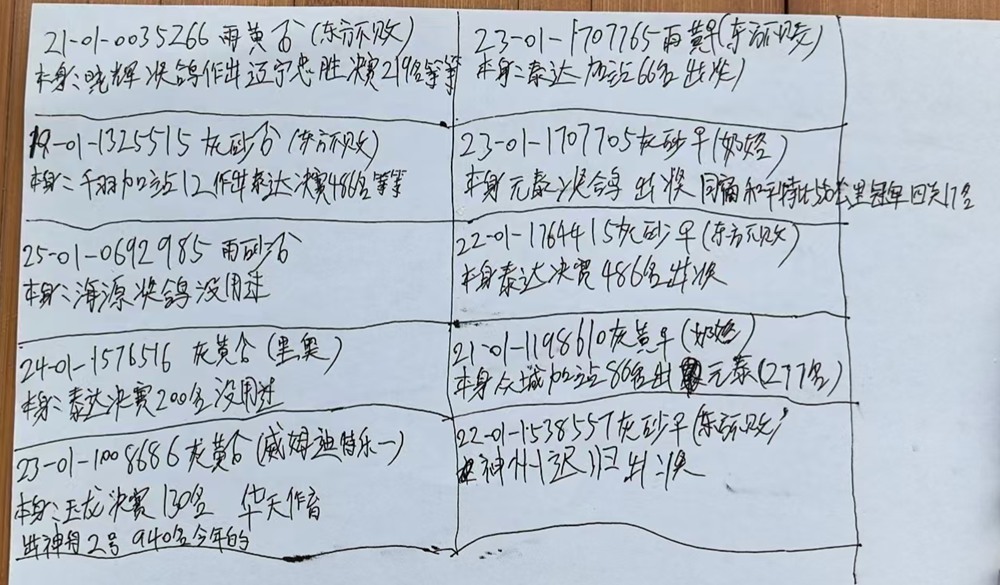 21-01-0035266 雨黄公(东方不败)
本身:晓辉奖鸽作出辽宁忠胜决赛219名等等
19-01-1325515 灰砂公(东方不败)
本身:千羽加站12作出泰达决赛486名等等
25-01-0692985 雨砂公
本身:海源奖鸽没用过
24-01-1576516 灰黄公(里奥)
本身:泰达决赛200名没用过
23-01-1008686 灰黄公(威姆迪特乐一)
本身:玉龙决赛130名 华天作育
出神舟2号 940名今年的
23-01-1707765 雨黄母(东方不败)
本身:泰达加站66名出奖)
23-01-1707705 灰砂母(奶娃)
本身元泰奖鸽出奖 同窝和平特比550公里冠军四关17名
22-01-1764415灰砂母(东方不败)
本身泰达决赛486名出奖
21-01-1198610灰黄母(奶娃)
本身众城加站86名出元泰(277名)
22-01-1538557灰砂母(东方不败)
神州1迟归出奖